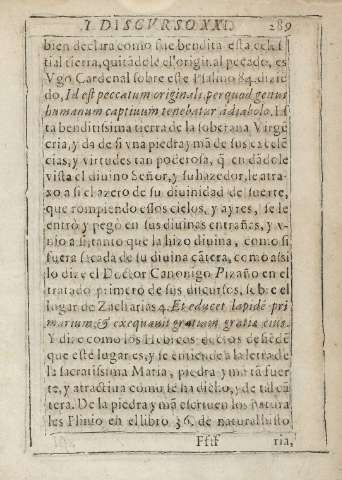 DISCVRSO XXI. 289
bien declara como fue bendita esta celes
tial tierra, quitādole el original pecado, es
Vgo Cardenal sobre este Psalmo 84. diziē
do, Id est peccatum originale, per quod genus
humanum captiuum tenebatur a diabolo. Es
ta benditissima tierra de la soberana Virgē
cria, y da de si vna piedra ymā de sus excelē
cias, y virtudes tan poderosa, q̄ en dādole
vista el diuino Señor, y su hazedor, le atra-
xo a si el azero de su diuinidad de suerte,
que rompiendo essos cielos, y ayres, se le
entró y pegó en sus diuinas entrañas, y v-
nio a si, tanto que la hizo diuina, como si
fuera sacada de su diuina cātera, como assi
lo dize el Doctor Canonigo Pizaño en el
tratado primero de sus discursos, sobre el
lugar de Zacharias 4. Et educet lapidē pri
marium, & exequauit gratiam gratiæ eius.
Y dize como los Hebreos doctos desiēdē
que este lugar es, y se entiende a la letra de
la sacratissima Maria, piedra ymā tā fuer
te, y atractiua como se ha dicho, y de tal cā
tera. De la piedra ymā escriuen los natura
les Plinio en el libro 36. de natural histo
Ffff ria,